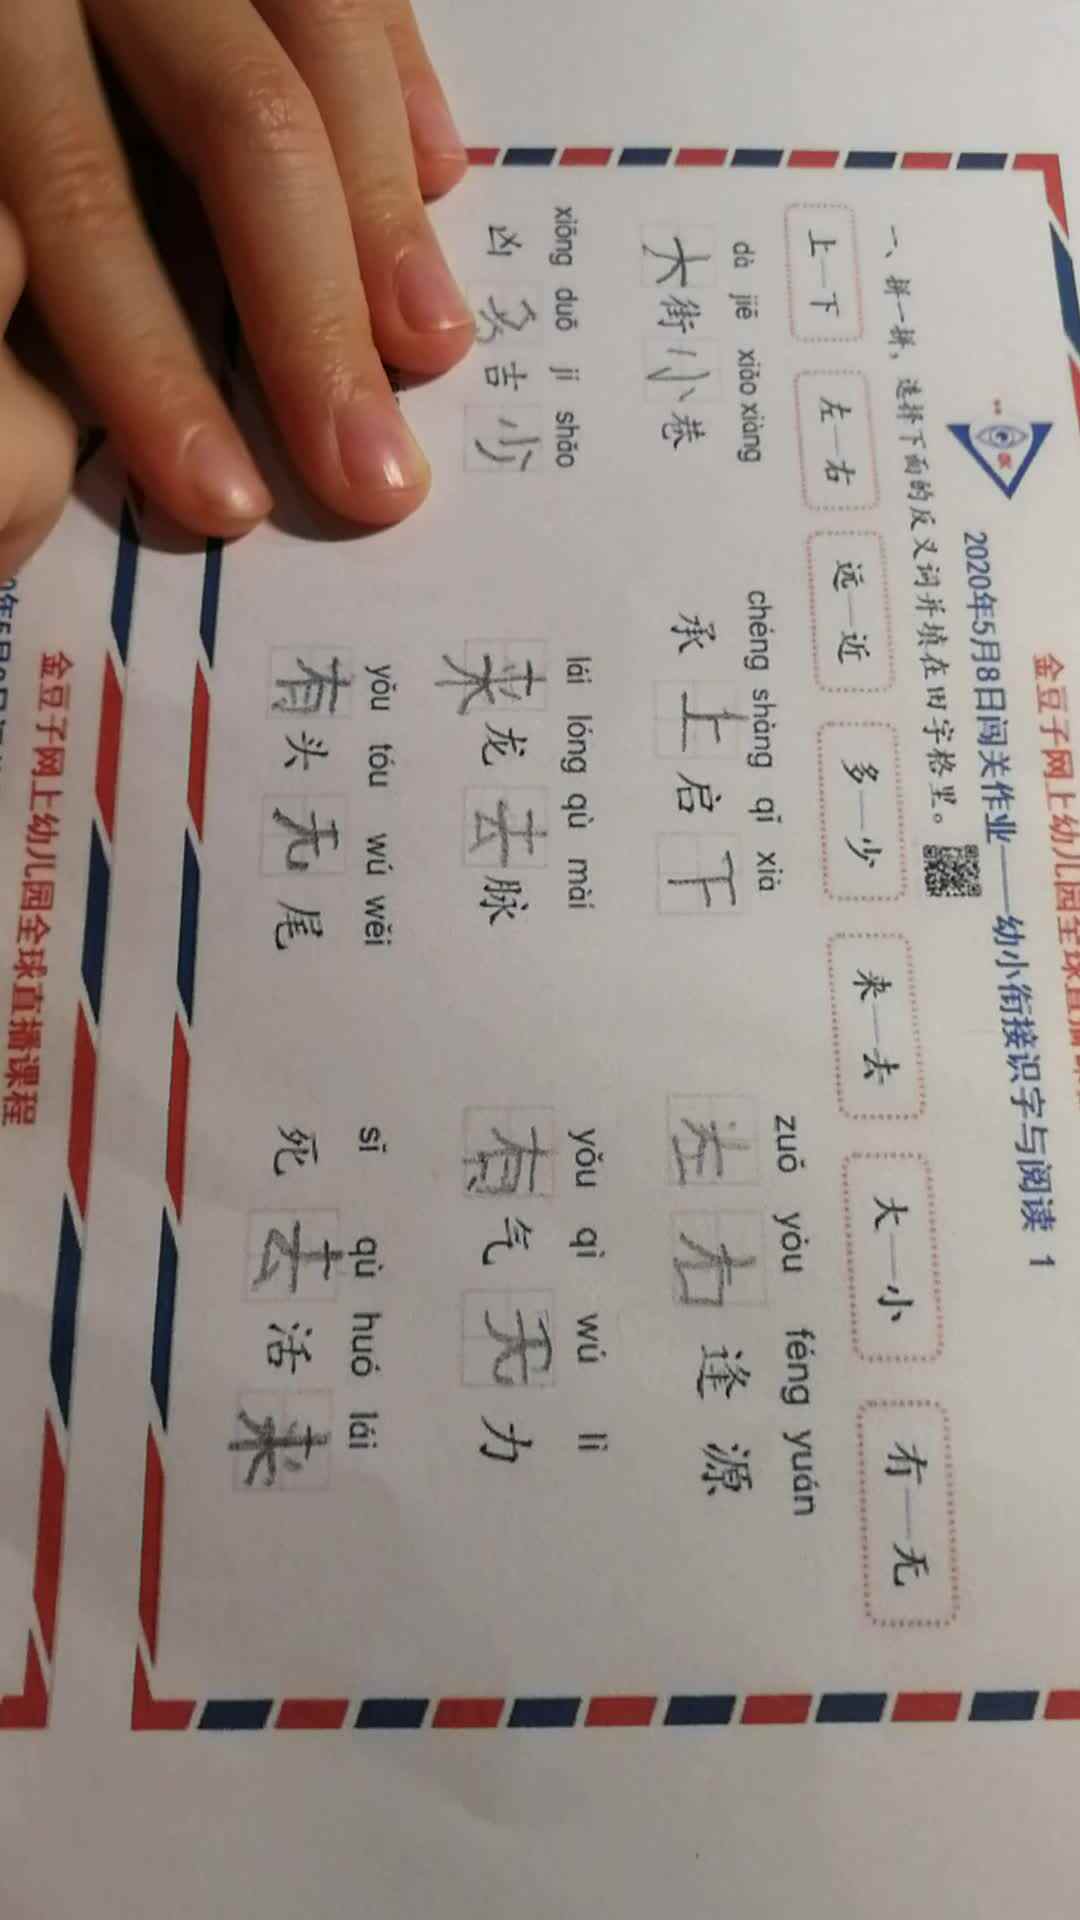 金豆子网上幼儿园全球直播课
2020年5月8日闯关作业——幼小衔接识字与阅读 1
一、拼一拼，选择下面的反义词并填在田字格里。
上—下 左—右 远—近 多—少 来—去 大—小 有—无
dà jiē xiǎo xiàng chéng shàng qǐ xià zuǒ yòu féng yuán
大街小巷 承上启下 左右逢源
xiōng duō jí shǎo lái lóng qù mài yǒu qì wú lì
凶多吉少 来龙去脉 有气无力
yǒu tóu wú wěi sǐ qù huó lái
有头无尾 死去活来
金豆子网上幼儿园全球直播课程